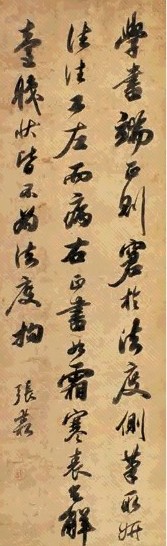 學書端正則窘於法度側筆取妍
往往工左而病右正書如霜寒表乞解
臺職狀皆不為法度拘
張